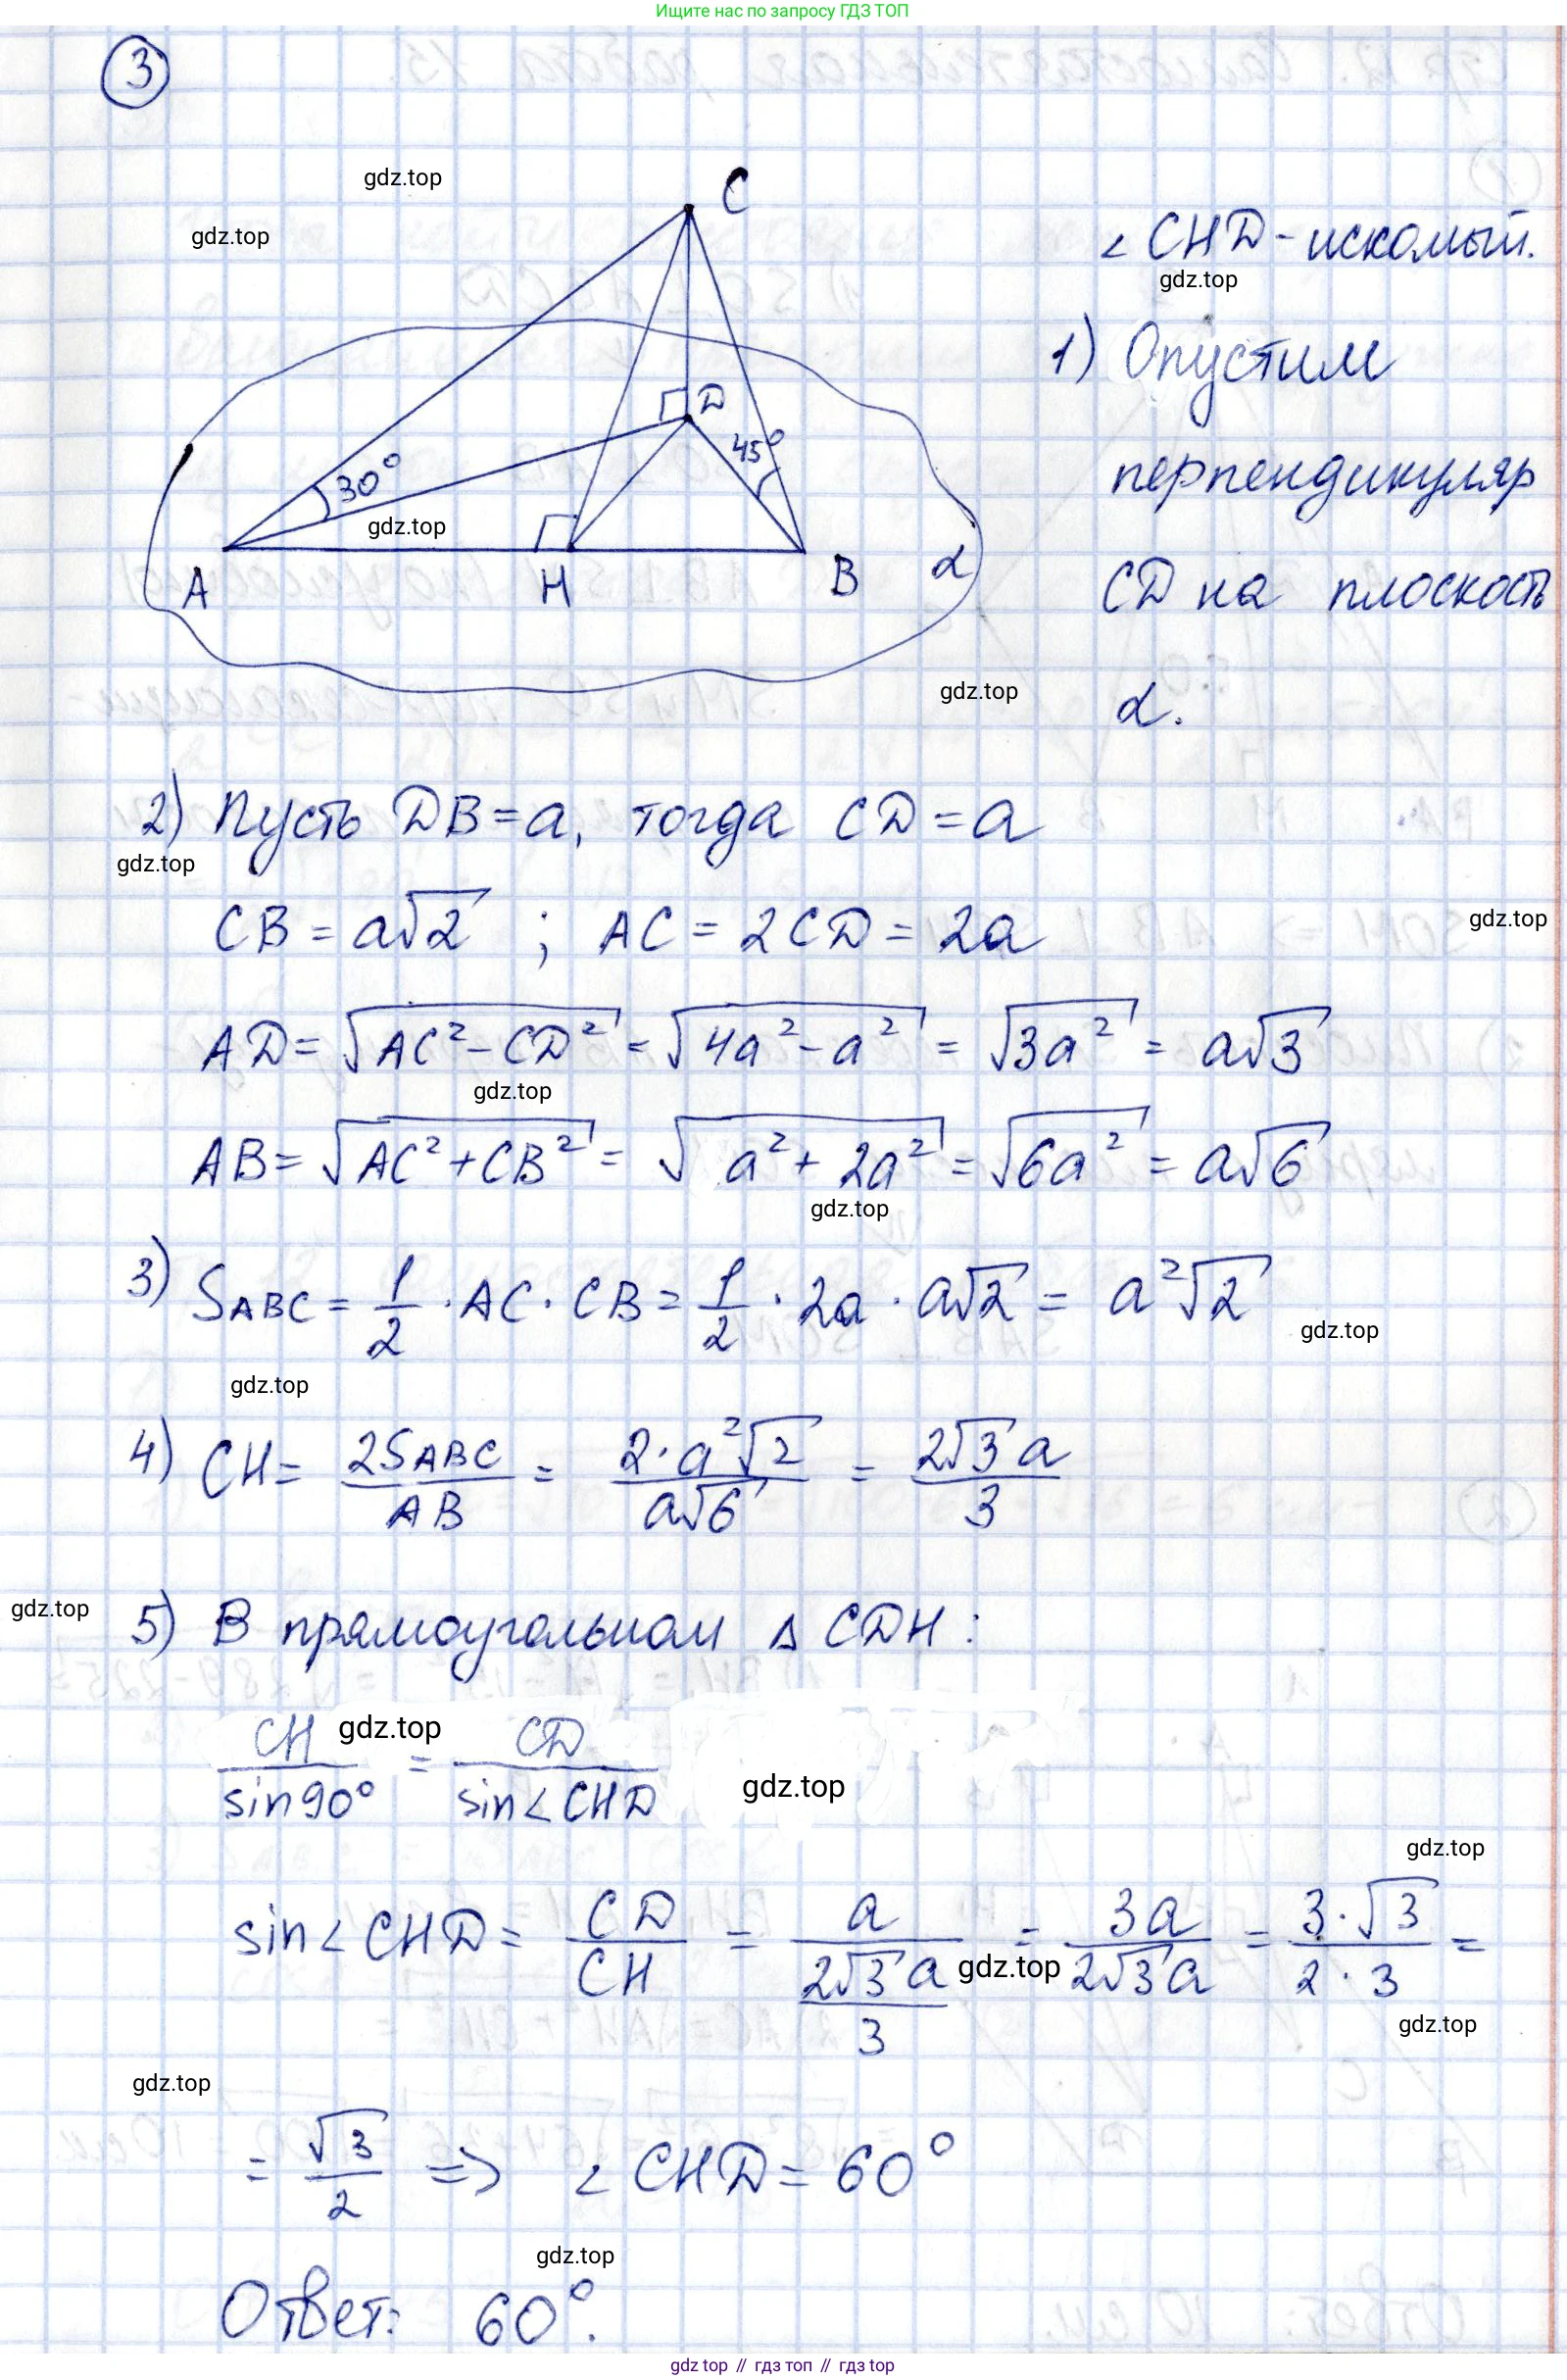 Ищите нас по запросу ГДЗ ТОП
3
gdz.top
C
gdz.top
∠ CHD - искомый.
gdz.top
1) Опустим
D
45°
30°
перпендикуляр
gdz.top
A H B α
CD на плоскость
gdz.top
α.
2) Пусть DB = a, тогда CD = a
gdz.top
CB = a√2 ; AC = 2CD = 2a
gdz.top
AD = √(AC² - CD²) = √(4a² - a²) = √(3a²) = a√3
gdz.top
AB = √(AC² + CB²) = √(a² + 2a²) = √(6a²) = a√6
gdz.top
3) SABC = 1/2 · AC · CB = 1/2 · 2a · a√2 = a²√2
gdz.top
gdz.top
4) CH = 2SABC/AB = 2·a²√2/a√6 = 2√3a/3
gdz.top
5) В прямоугольном Δ CDH:
CH/sin90° = CD/sin∠CHD
gdz.top
gdz.top
gdz.top
sin∠CHD = CD/CH = a/(2√3a/3) = 3a/2√3a = 3·√3/2·3 =
gdz.top
gdz.top
gdz.top
= √3/2 => ∠CHD = 60°
gdz.top
Ответ: 60°.
gdz top // гдз топ // gdz top